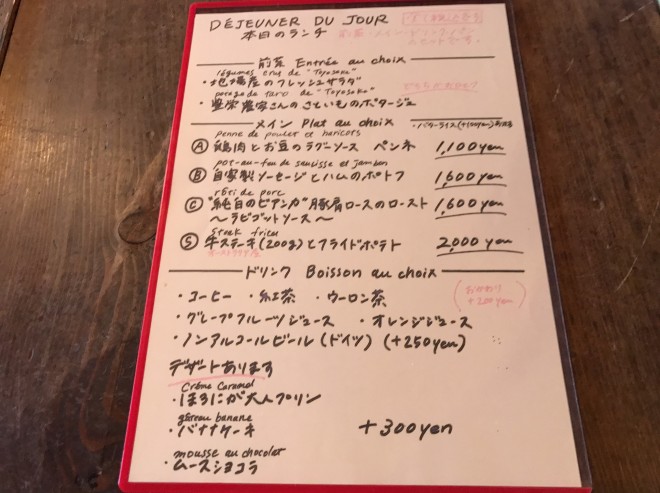 DÉJEUNER DU JOUR
本日のランチ
前菜 Entrée au choix
légumes crus de "Toyosako"
・地場産のフレッシュサラダ
potage de taro de "Toyosako"
・豊栄農家さんのさといものポタージュ
メイン Plat au choix
penne de poulet et haricots
Ⓐ 鶏肉とお豆のラグーソース ペンネ 1,100yen
pot-au-feu de saucisse et jambon
Ⓑ 自家製ソーセージとハムのポトフ 1,600yen
rôti de porc
Ⓒ "純白のビアンカ"豚肩ロースのロースト 1,600yen
〜ラビゴットソース〜
steak frites
Ⓢ 牛ステーキ(200g)とフライドポテト 2,000yen
オーストラリア産
ドリンク Boisson au choix
・コーヒー ・紅茶 ・ウーロン茶
(おかわり
+200yen)
・グレープフルーツジュース ・オレンジジュース
・ノンアルコールビール(ドイツ)(+250yen)
デザートあります
Crème Caramel
・ほろにが大人プリン
gâteau banane
・バナナケーキ +300yen
mousse au chocolat
・ムースショコラ